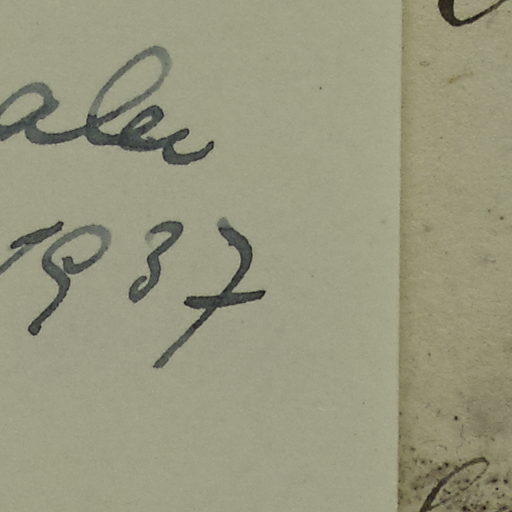 alev
1937